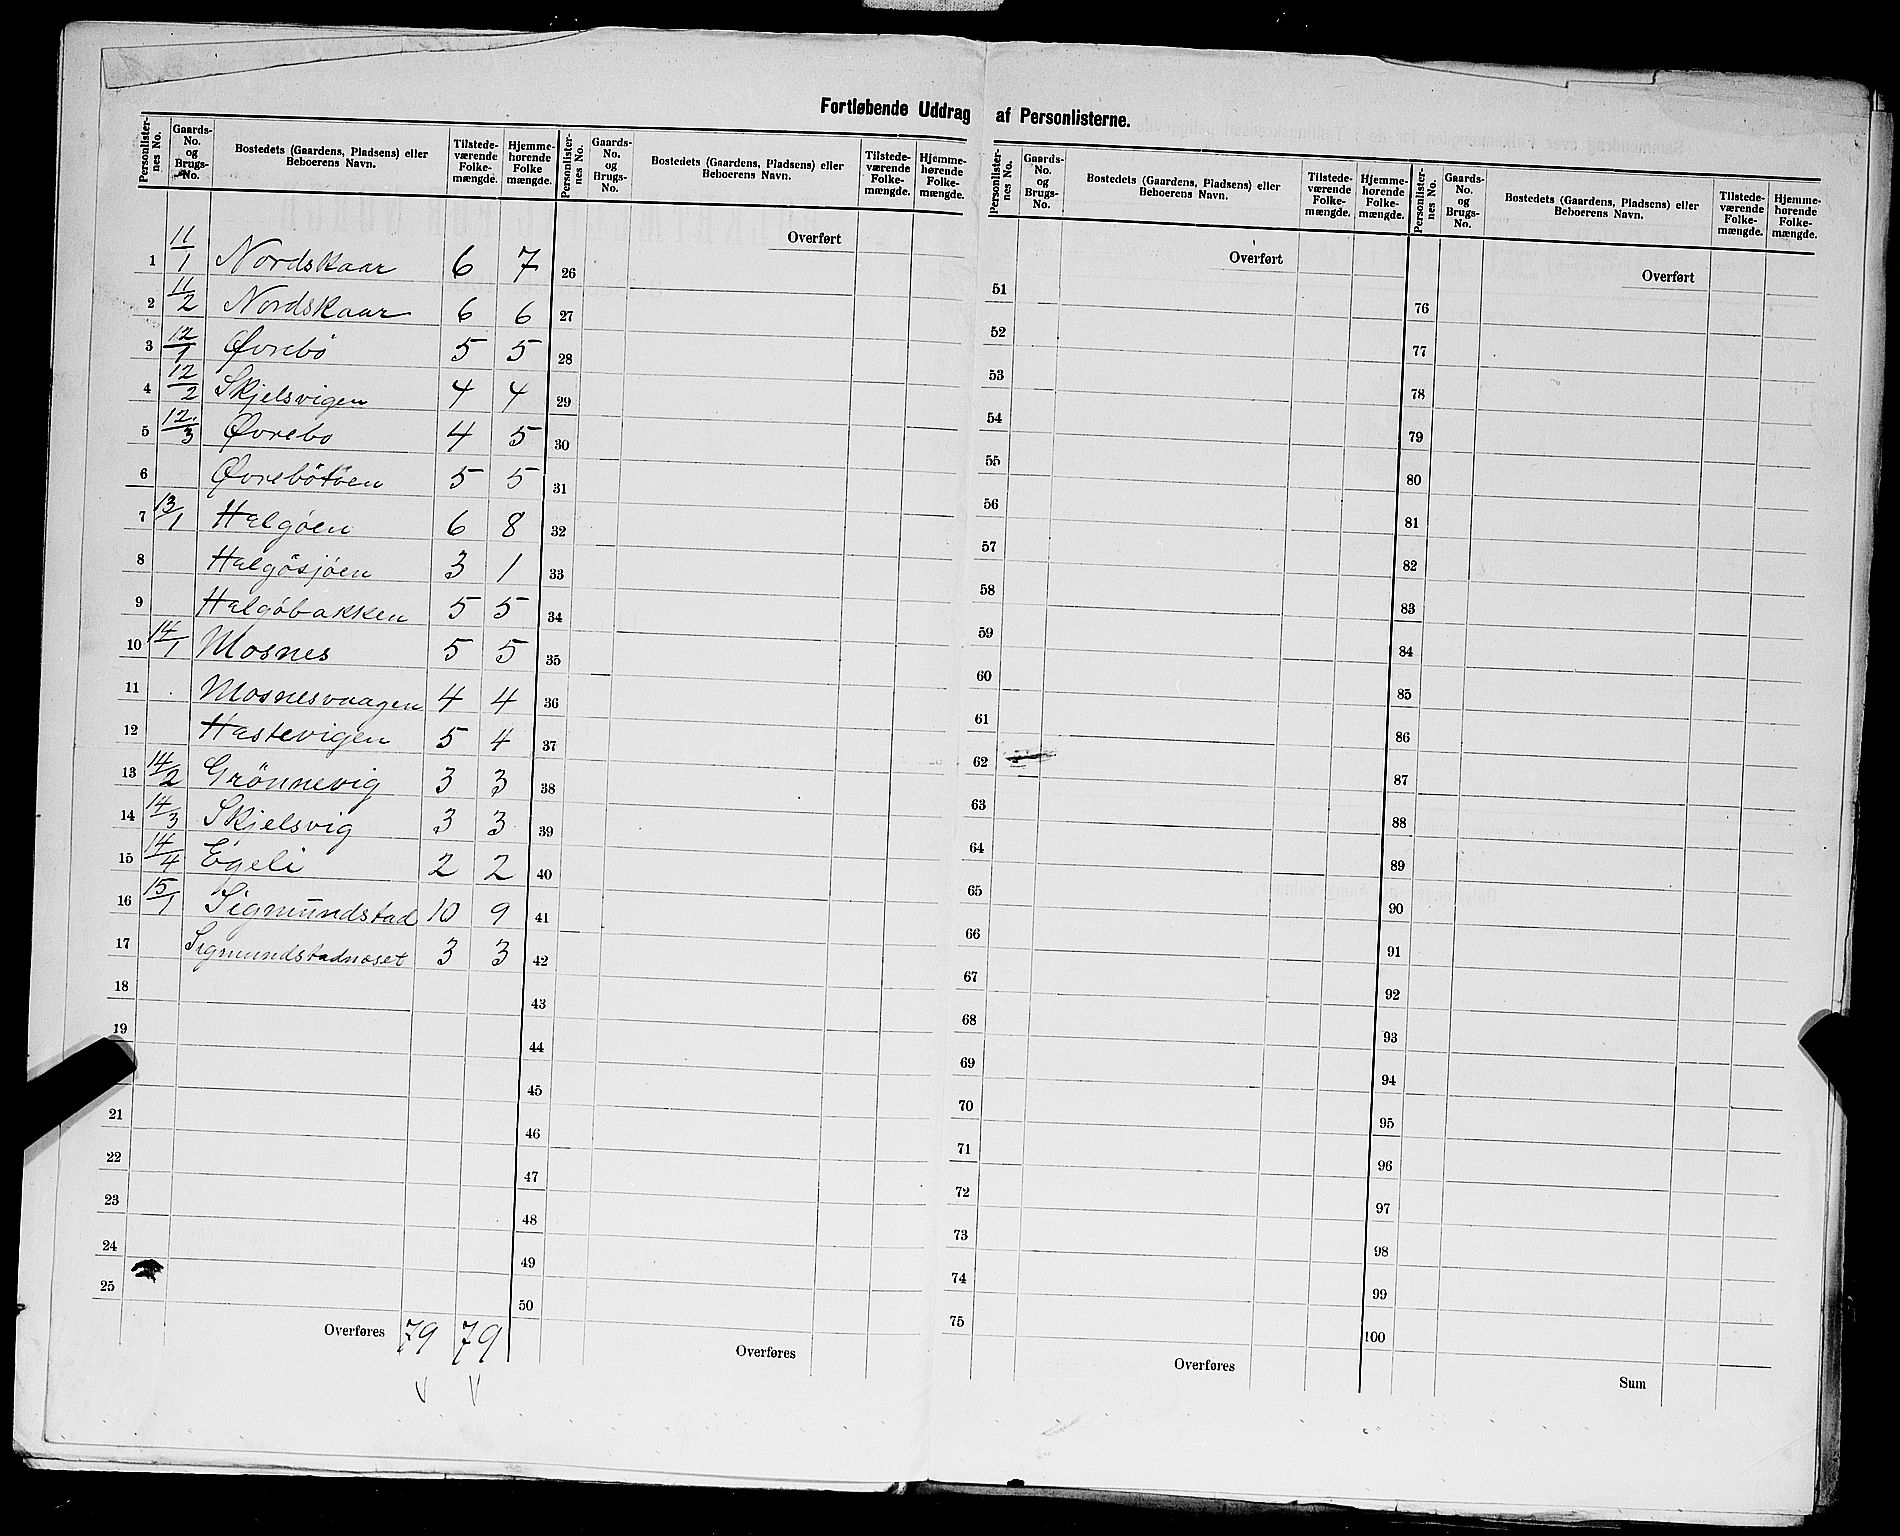 Fortløbende Uddrag af Personlisterne.
Personlisternes No. | Gaards-No. og Brugs-No. | Bostedets (Gaardens, Pladsens) eller Beboerens Navn. | Tilstedeværende Folkemængde. | Hjemmehørende Folkemængde.
1 | 11/1 | Nordskaar | 6 | 7
2 | 11/2 | Nordskaar | 6 | 6
3 | 12/1 | Øvrebö | 5 | 5
4 | 12/2 | Skjelsvigen | 4 | 4
5 | 12/3 | Øvrebo | 4 | 5
6 | | Øvrebötöen | 5 | 5
7 | 13/1 | Halgöen | 6 | 8
8 | | Halgösjöen | 3 | 1
9 | | Halgöbakken | 5 | 5
10 | 14/1 | Mosnes | 5 | 5
11 | | Mosnesvaagen | 4 | 4
12 | | Hastevigen | 5 | 4
13 | 14/2 | Grönnevig | 3 | 3
14 | 14/3 | Skjelsvig | 3 | 3
15 | 14/4 | Egeli | 2 | 2
16 | 15/1 | Sigmundstad | 10 | 9
17 | | Sigmundstadnæset | 3 | 3
18
19
21
22
23
24
25
Overføres 79 79
Personlisternes No. | Gaards-No. og Brugs-No. | Bostedets (Gaardens, Pladsens) eller Beboerens Navn. | Tilstedeværende Folkemængde. | Hjemmehørende Folkemængde.
Overført
26
27
28
29
30
31
32
33
34
35
36
37
38
39
40
41
42
43
44
45
46
47
48
49
50
Overføres
Personlisternes No. | Gaards-No. og Brugs-No. | Bostedets (Gaardens, Pladsens) eller Beboerens Navn. | Tilstedeværende Folkemængde. | Hjemmehørende Folkemængde.
Overført
51
52
53
54
55
56
57
58
59
60
61
62
63
64
65
66
67
68
69
70
71
72
73
74
75
Overføres
Personlisternes No. | Gaards-No. og Brugs-No. | Bostedets (Gaardens, Pladsens) eller Beboerens Navn. | Tilstedeværende Folkemængde. | Hjemmehørende Folkemængde.
Overført
76
77
78
79
80
81
82
83
84
85
86
87
88
89
90
91
92
93
94
95
96
97
98
99
100
Sum